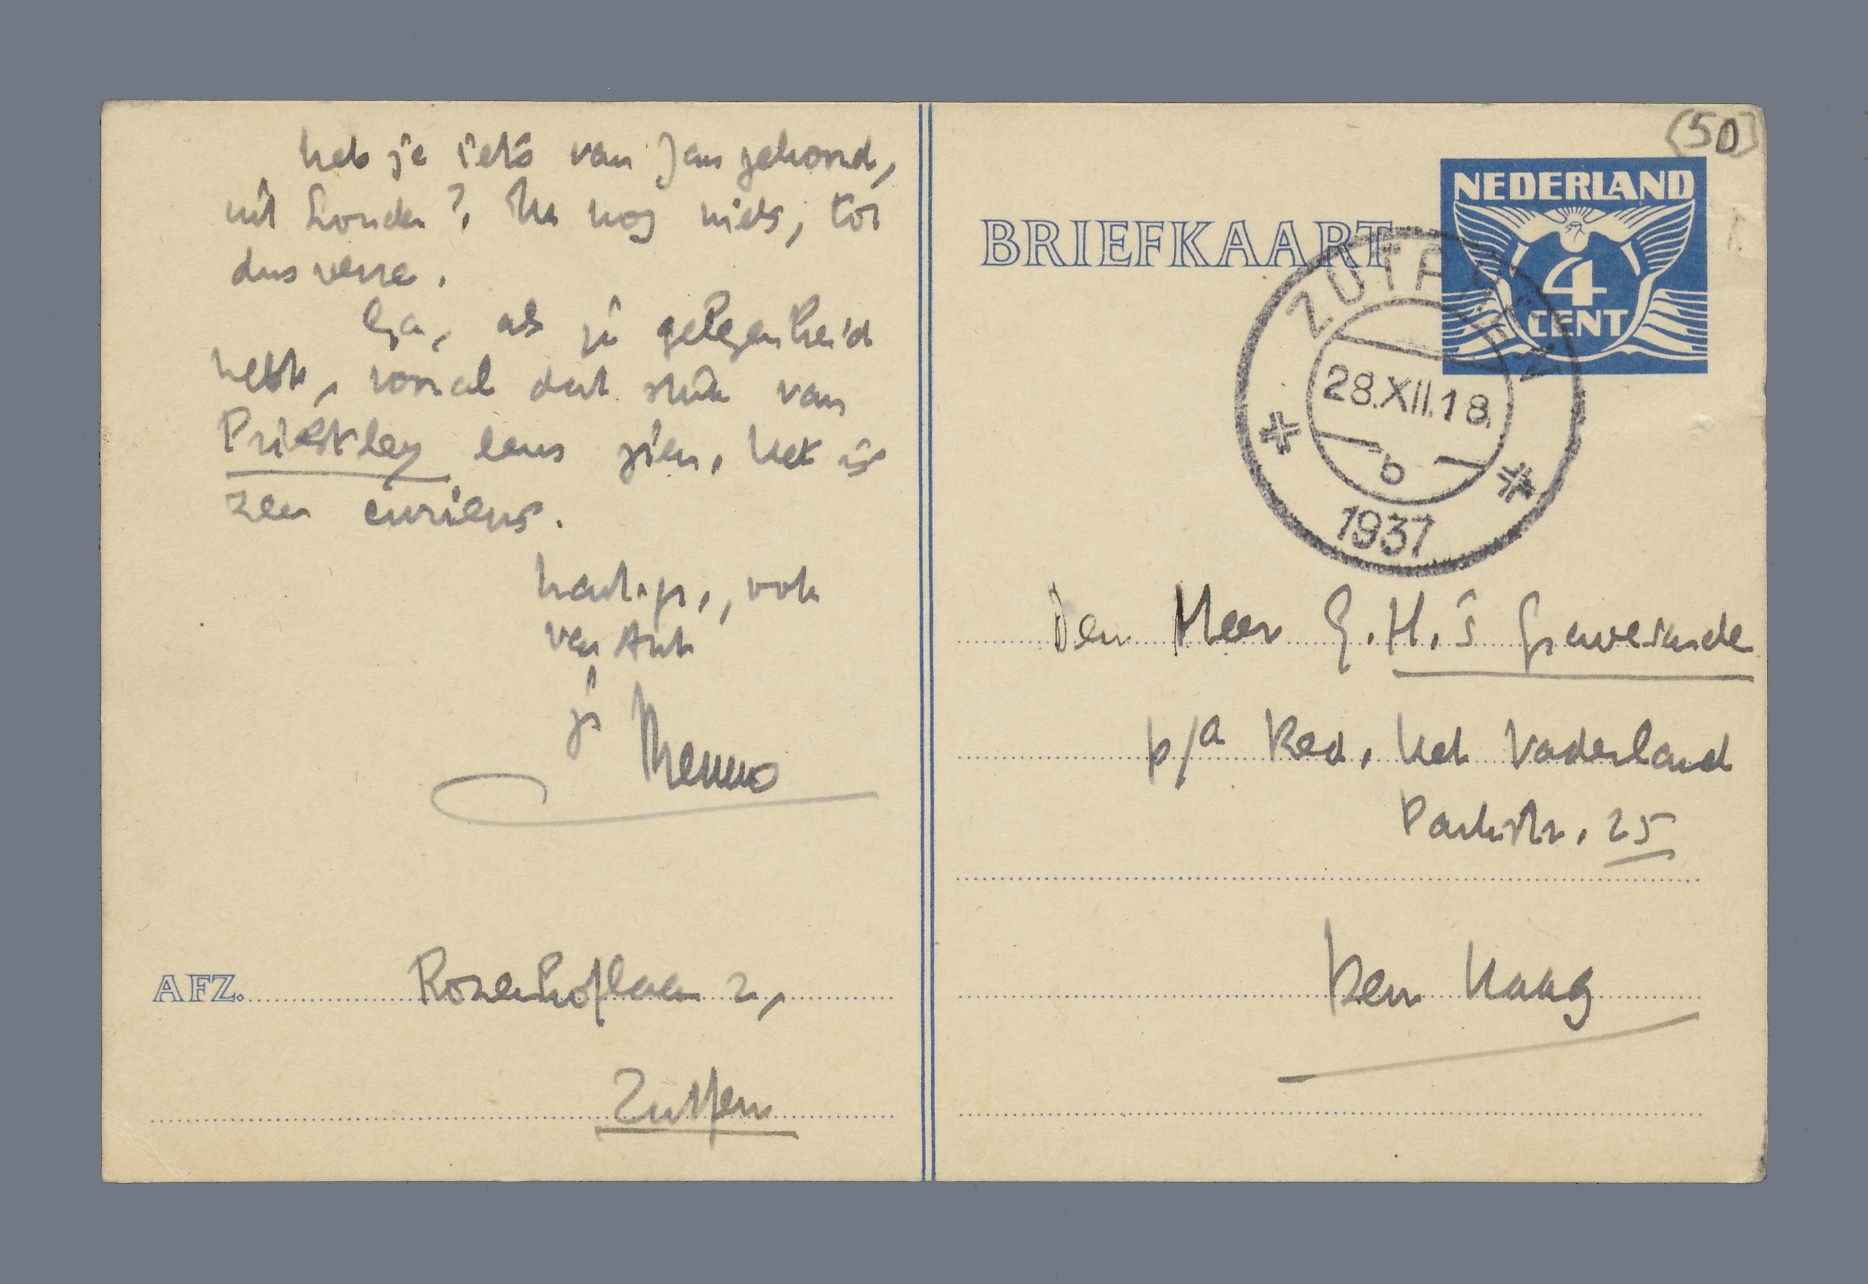 Heb je iets van Jan gehoord,
uit Londen? Ik nog niets, tot
dusverre.
Ga, als je gelegenheid
hebt, vooral dat stuk van
Priestley eens zien, het is
zeer curieus.
hart. gr., ook
van Ant
je Menno
AFZ. Rozenhoflaan 2,
Zutfen
(50)
NEDERLAND
4
CENT
BRIEFKAART
ZUTPHEN
28.XII.18.
b
1937
Den Heer G.H. 's Gravesande
p/a Red. Het Vaderland
Parkstr. 25
Den Haag